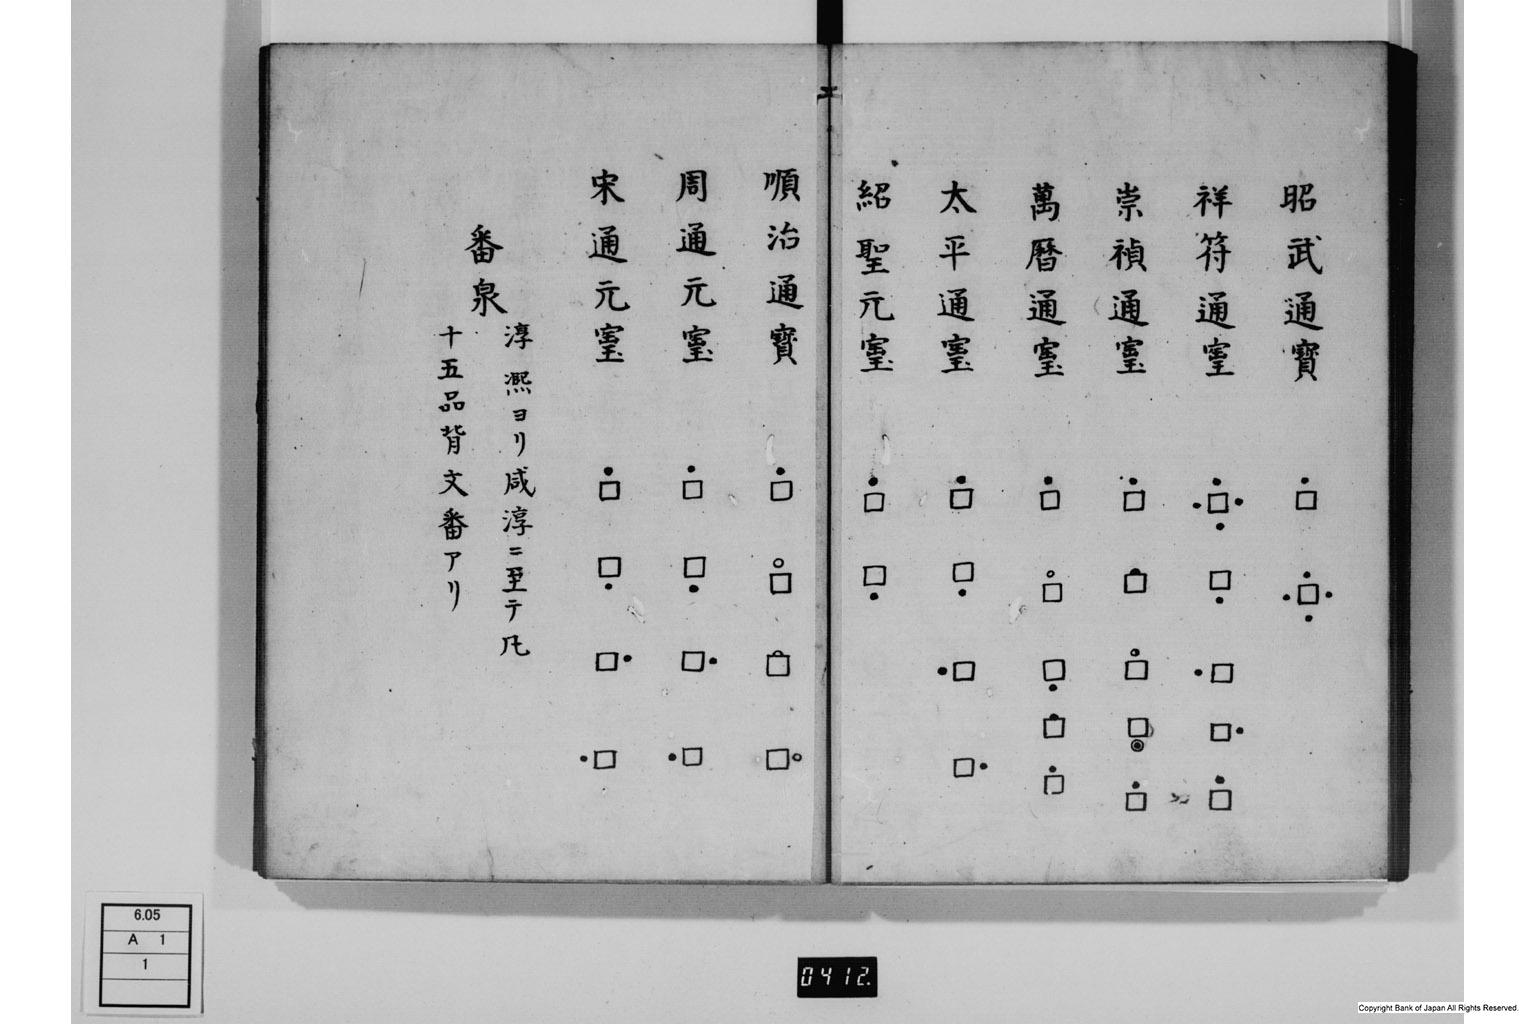 昭武通寳
祥符通寳
崇禎通寳
萬曆通寳
太平通寳
紹聖元寳
順治通寳
周通元寳
宋通元寳
番泉
淳熈ヨリ咸淳ニ至テ凡
十五品背文番アリ
6.05
A 1
1
0412.
Copyright Bank of Japan All Rights Reserved.